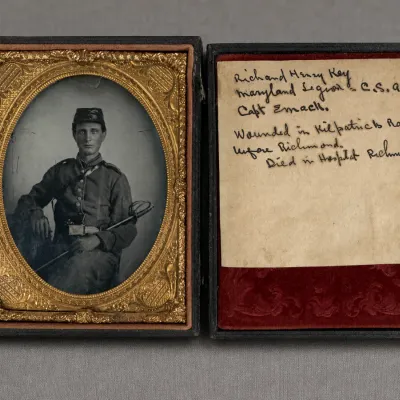 Richard Henry Key
Maryland Legion - C.S.A
Capt Emack.
Wounded in Kilpatricks Ra
before Richmond.
Died in Hospital Richm